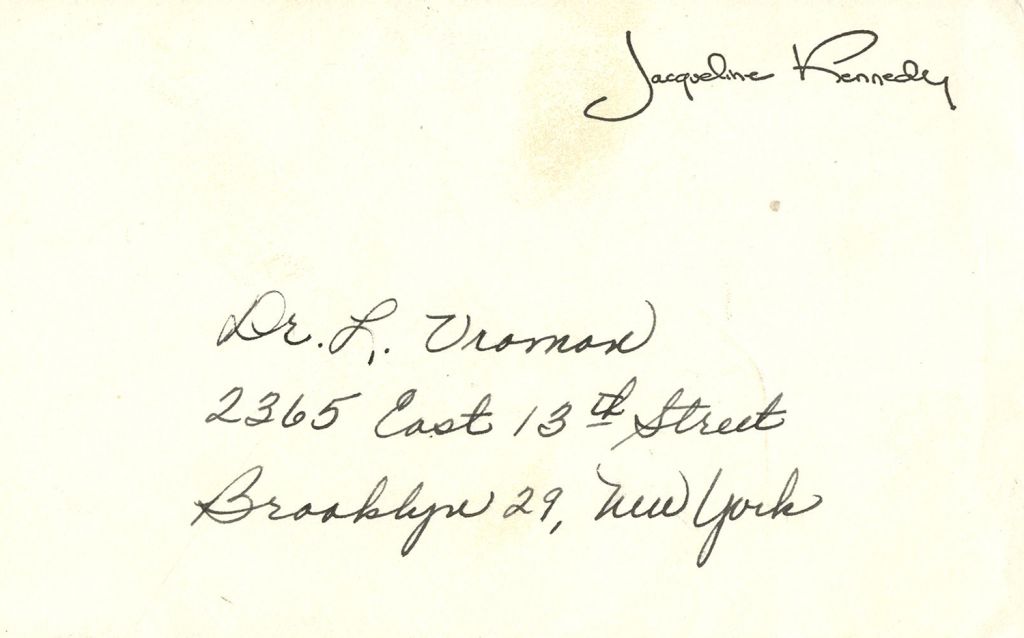 Jacqueline Kennedy
Dr. L. Vroman
2365 East 13th Street
Brooklyn 29, New York